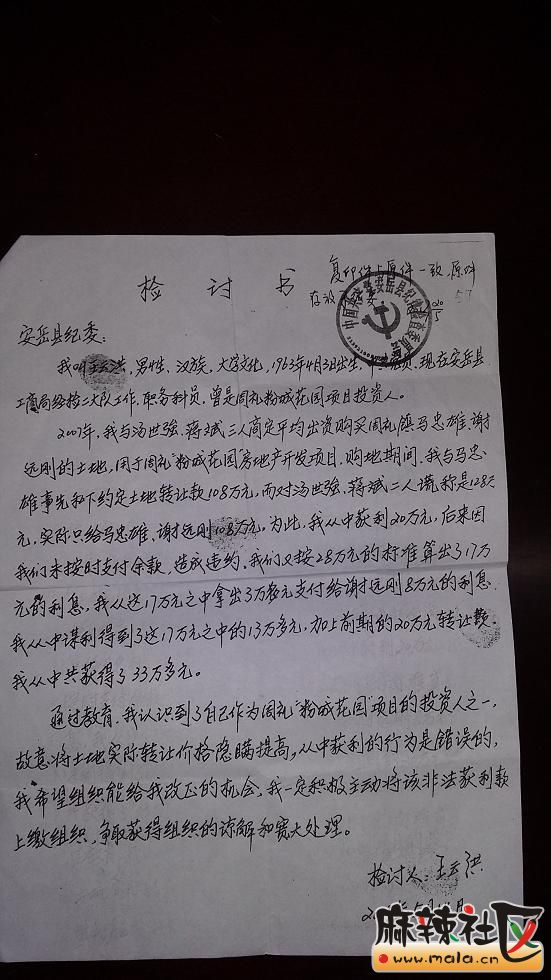 检讨书
复印件与原件一致,原件
存放
中国共产党安岳县纪律检查委员会
安岳县纪委:
我叫王云洪,男性,汉族,大学文化,1963年4月3日出生,现在安岳县
工商局经检二大队工作,职务科员,曾是周礼粉城花园项目投资人。
2007年,我与汤世强、蒋斌三人商定平均出资购买周礼镇马忠雄、谢
远刚的土地,用于周礼"粉城花园"房地产开发项目。购地期间,我与马忠
雄事先私下约定土地转让款108万元,而对汤世强、蒋斌二人谎称是128万
元,实际只给马忠雄、谢远刚108万元,为此,我从中获利20万元,后来因
我们未按时支付余款,造成违约,我们又按28万元的标准算出了17万
元的利息,我从这17万元之中拿出3万多元支付给谢远刚8万元的利息,
我从中谋利得到了这17万元之中的13万多元,加上前期的20万元转让款,
我从中共获得了33万多元。
通过教育,我认识到了自己作为周礼"粉城花园"项目的投资人之一,
故意将土地实际转让价格隐瞒提高,从中获利的行为是错误的,
我希望组织能给我改正的机会,我一定积极主动将该非法获利款
上缴组织,争取获得组织的谅解和宽大处理。
检讨人:王云洪
麻辣社区
www.mala.cn